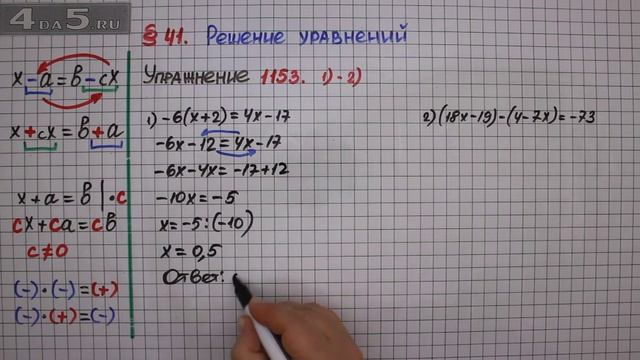 4DA5.RU
§ 41. Решение уравнений
Упражнение 1153. 1)-2)
x-a=b-cx
x+cx=b+a
x+a=b |·c
cx+ca=cb
c≠0
(-)·(-)=(+)
(-)·(+)=(-)
1) -6(x+2)=4x-17
-6x-12=4x-17
-6x-4x=-17+12
-10x=-5
x=-5:(-10)
x=0,5
Ответ:
2) (18x-19)-(4-7x)=-73